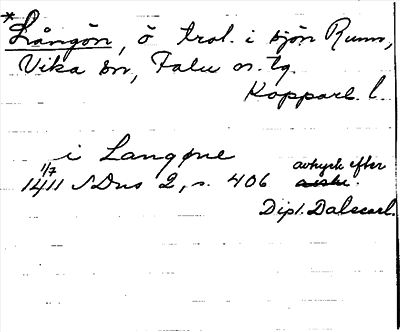 *Långön, ö trol. i sjön Runn,
Vika sn, Falu n. tg.
Kopparb. l.
i Langøne
1/7 avtryck efter
1411 SDns 2, s. 406
Dipl. Dalecarl.